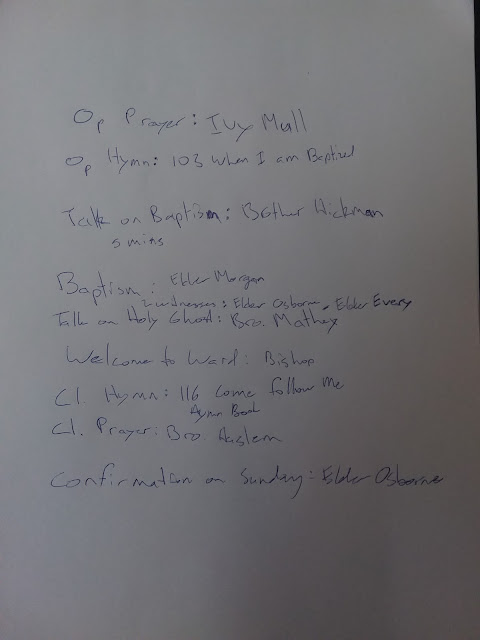 Op Prayer: Ivy Mull
Op Hymn: 103 When I am Baptized
Talk on Baptism: Brother Hickman
5 mins
Baptism: Elder Morgan
2 witnesses: Elder Osborne, Elder Every
Talk on Holy Ghost: Bro. Mathey
Welcome to Ward: Bishop
Cl. Hymn: 116 Come follow Me
Hymn Book
Cl. Prayer: Bro. Haslem
Confirmation on Sunday: Elder Osborne